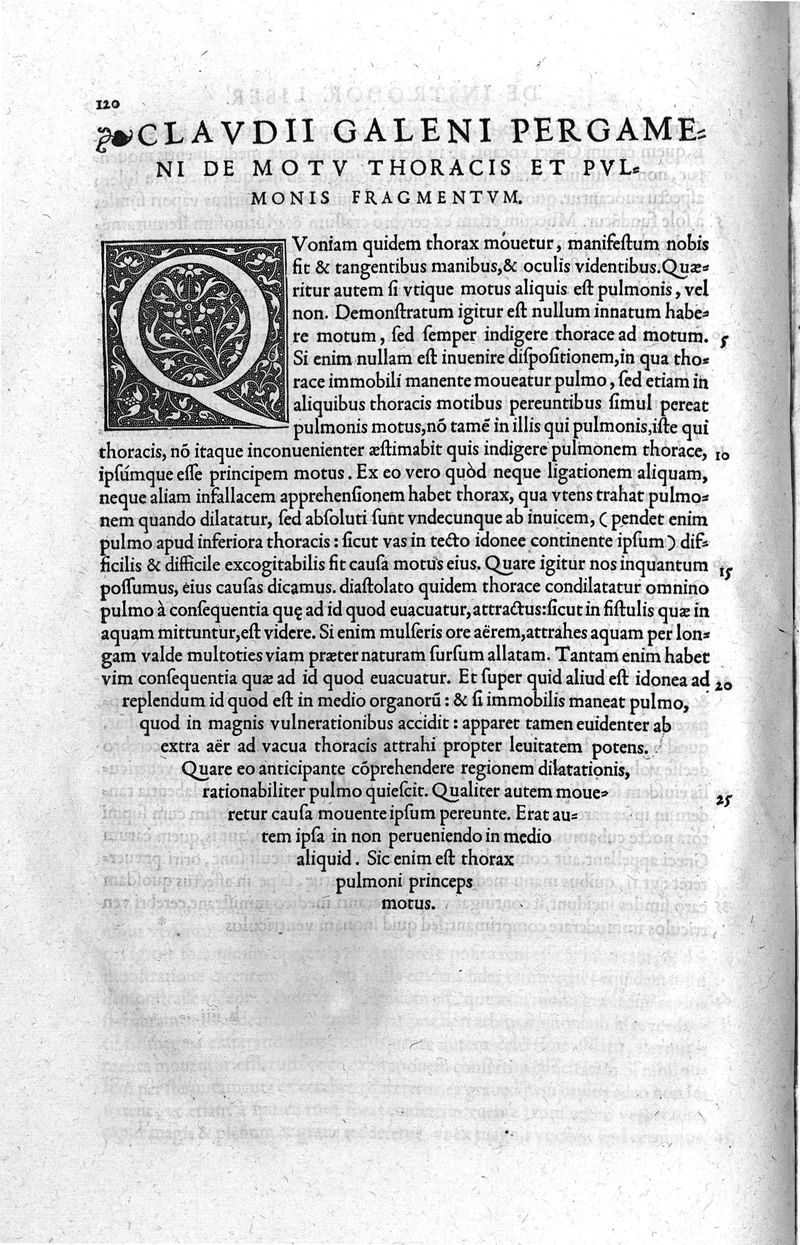 120
CLAVDII GALENI PERGAME-
NI DE MOTV THORACIS ET PVL-
MONIS FRAGMENTVM.
QVoniam quidem thorax mouetur, manifeſtum nobis
ſit & tangentibus manibus, & oculis videntibus. Quæ-
ritur autem ſi vtique motus aliquis eſt pulmonis, vel
non. Demonſtratum igitur eſt nullum innatum habe-
re motum, ſed ſemper indigere thorace ad motum. 5
Si enim nullam eſt inuenire diſpoſitionem, in qua tho-
race immobili manente moueatur pulmo, ſed etiam in
aliquibus thoracis motibus pereuntibus ſimul pereat
pulmonis motus, nō tamē in illis qui pulmonis, iſte qui
thoracis, nō itaque inconuenienter æſtimabit quis indigere pulmonem thorace, 10
ipſúmque eſſe principem motus. Ex eo vero quòd neque ligationem aliquam,
neque aliam infallacem apprehenſionem habet thorax, qua vtens trahat pulmo-
nem quando dilatatur, ſed abſoluti ſunt vndecunque ab inuicem, (pendet enim
pulmo apud inferiora thoracis: ſicut vas in tecto idonee continente ipſum) dif-
ficilis & difficile excogitabilis fit cauſa motus eius. Quare igitur nos inquantum 15
poſſumus, eius cauſas dicamus. diaſtolato quidem thorace condilatatur omnino
pulmo à conſequentia quę ad id quod euacuatur, attractus: ſicut in fiſtulis quæ in
aquam mittuntur, eſt videre. Si enim mulſeris ore aërem, attrahes aquam per lon-
gam valde multoties viam præter naturam ſurſum allatam. Tantam enim habet
vim conſequentia quæ ad id quod euacuatur. Et ſuper quid aliud eſt idonea ad 20
replendum id quod eſt in medio organorū: & ſi immobilis maneat pulmo,
quod in magnis vulnerationibus accidit: apparet tamen euidenter ab
extra aër ad vacua thoracis attrahi propter leuitatem potens.
Quare eo anticipante cōprehendere regionem dilatationis,
rationabiliter pulmo quieſcit. Qualiter autem moue- 25
retur cauſa mouente ipſum pereunte. Erat au-
tem ipſa in non perueniendo in medio
aliquid. Sic enim eſt thorax
pulmoni princeps
motus.